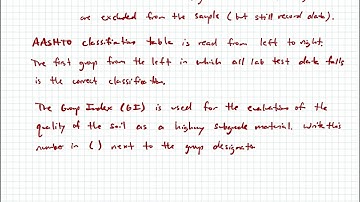 are excluded from the sample (but still record data).
AASHTO classification table is read from left to right.
The first group from the left in which all lab test data falls
is the correct classification.
The Group Index (GI) is used for the evaluation of the
quality of the soil as a highway subgrade material. Write this
number in ( ) next to the group designat